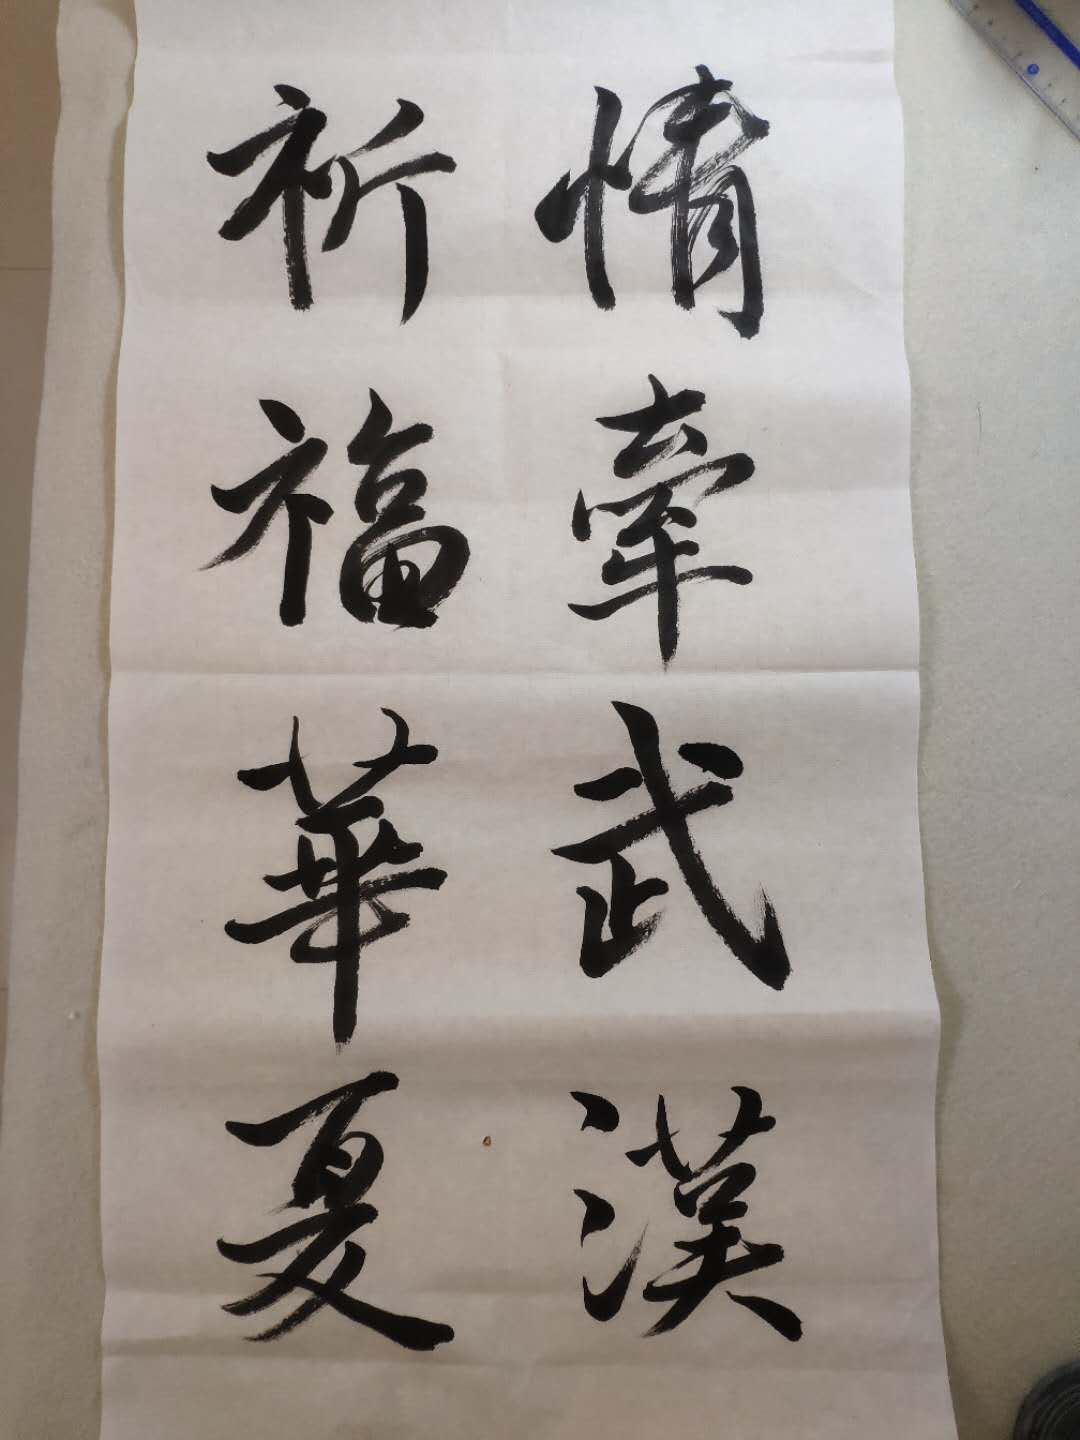 情牽武漢
祈福華夏